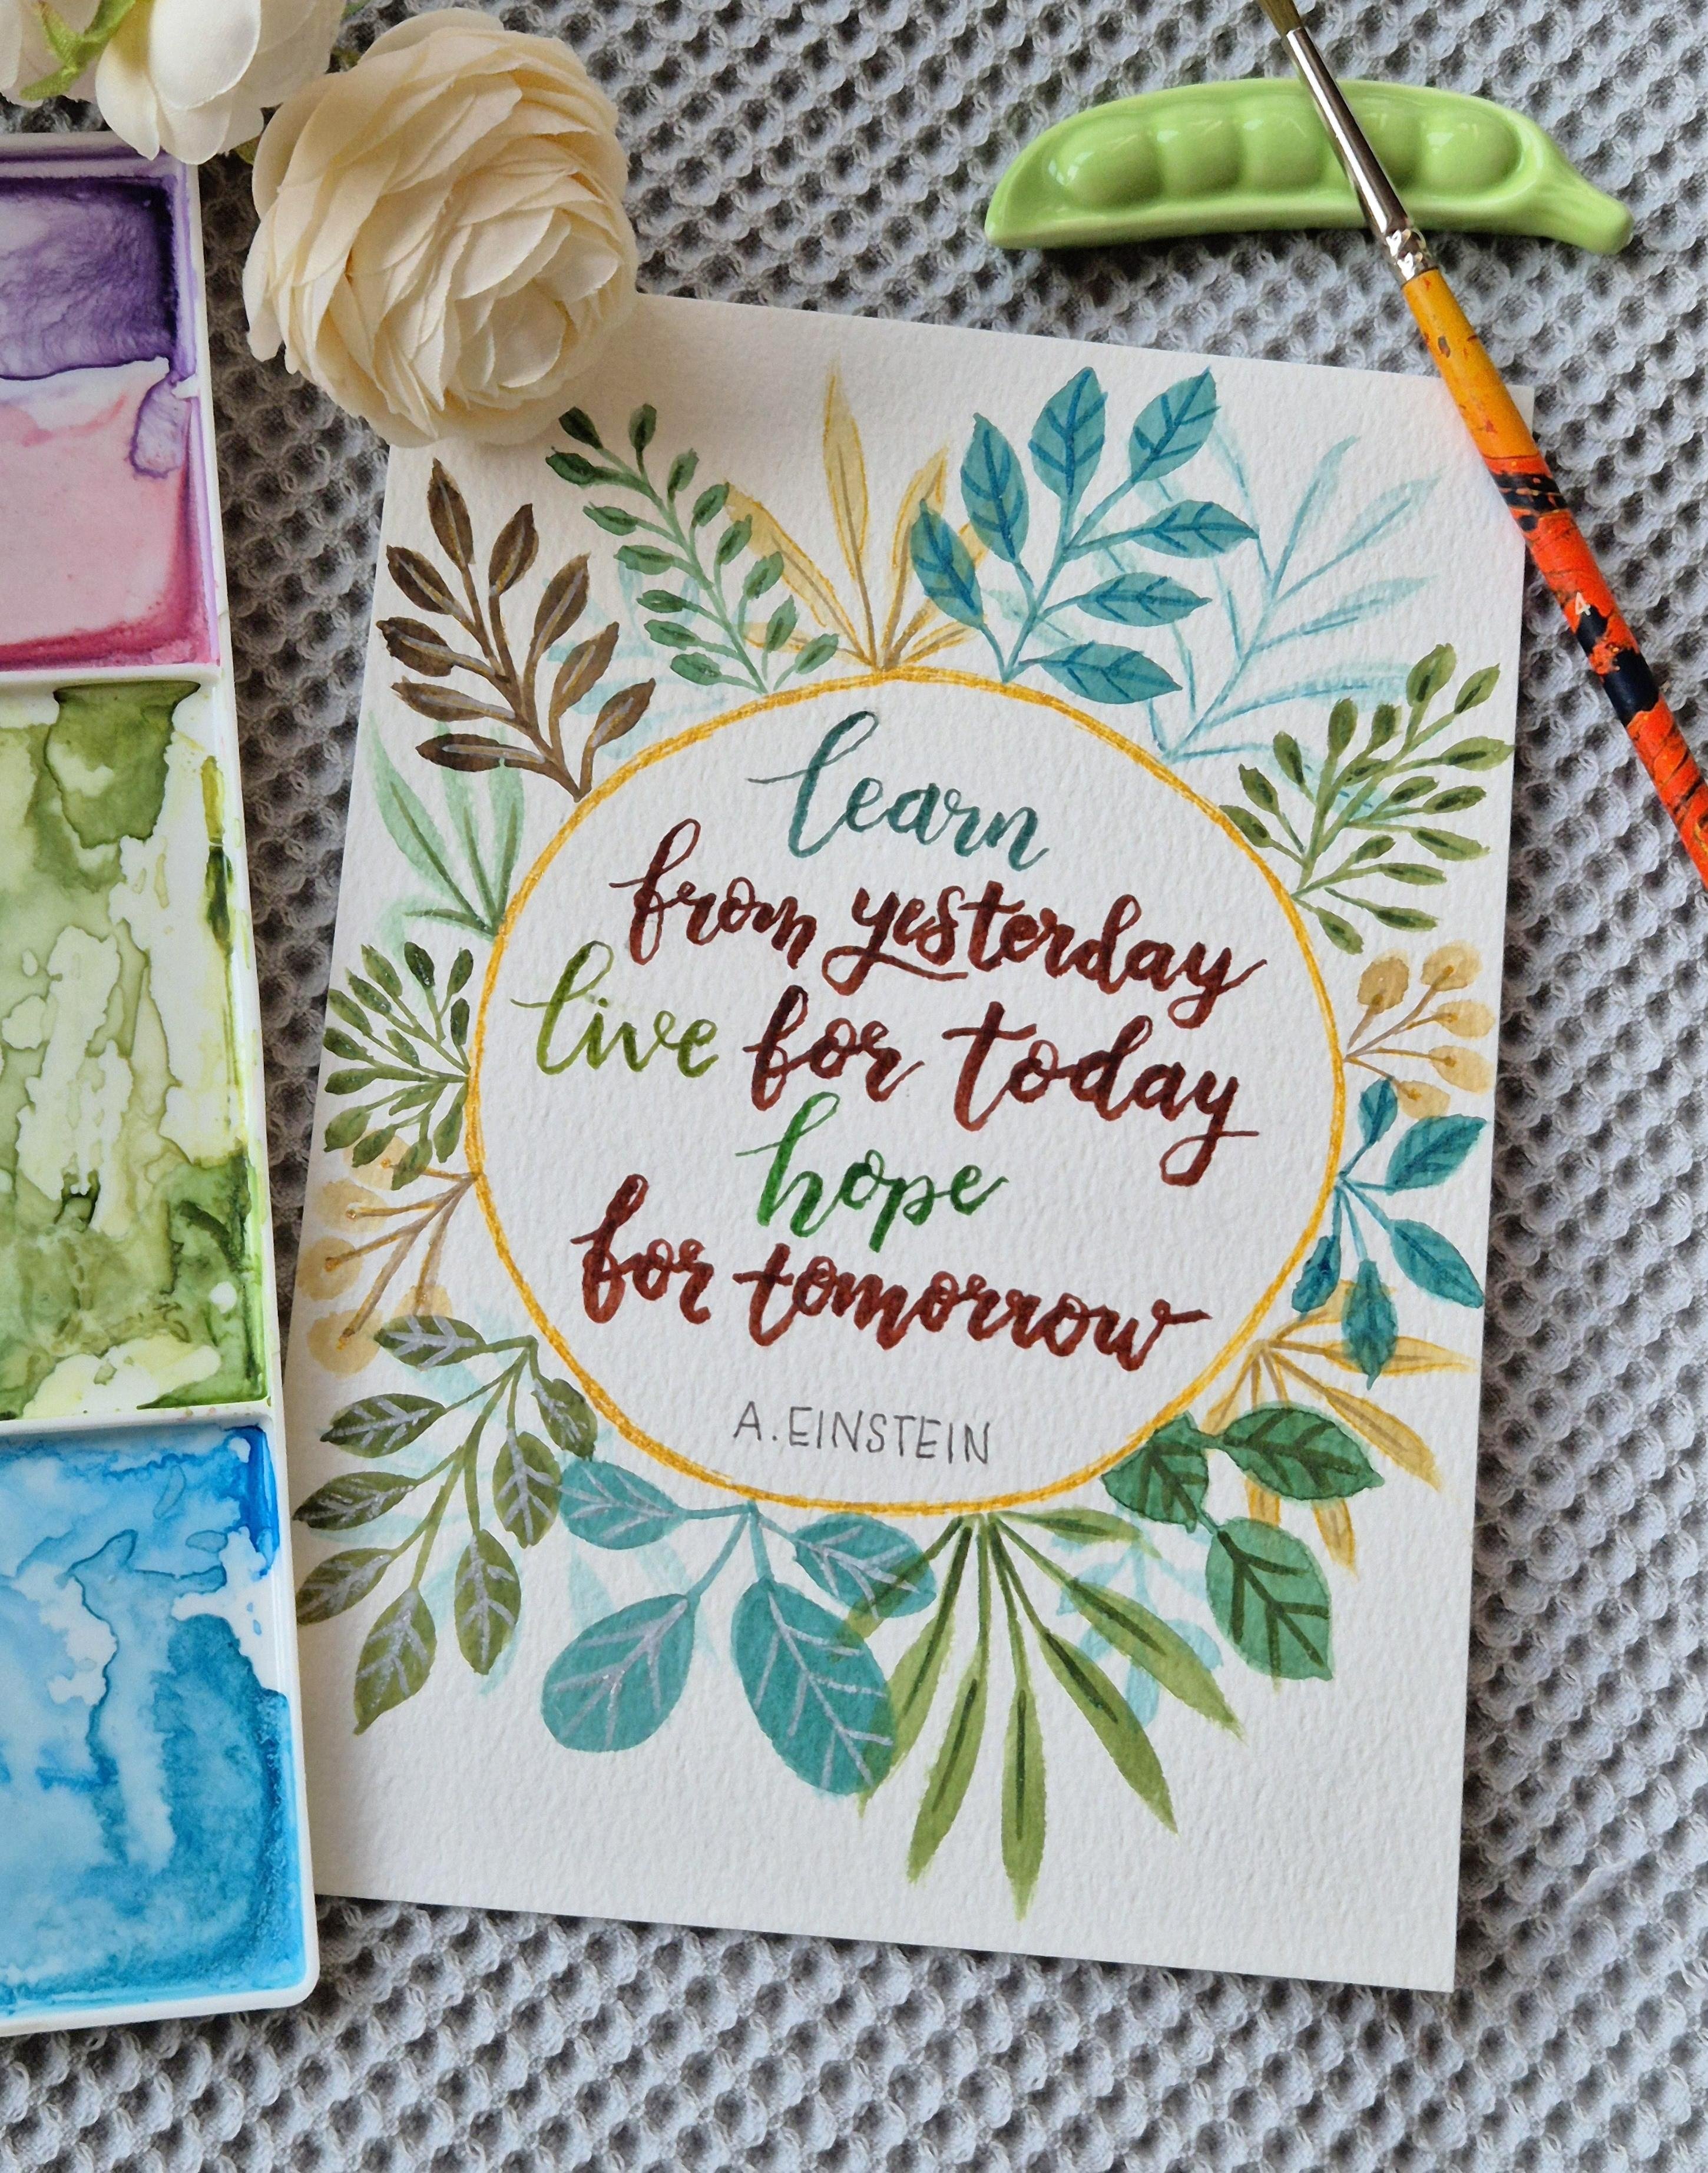 learn
from yesterday
live for today
hope
for tomorrow
A. EINSTEIN
4